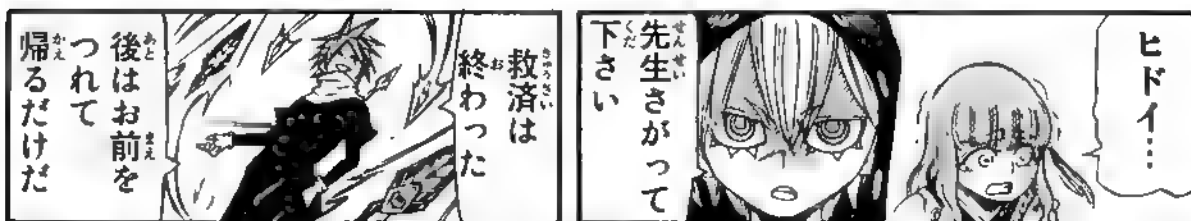 ヒドイ…
先生さがって
下さい
救済は
終わった
後はお前を
つれて
帰るだけだ